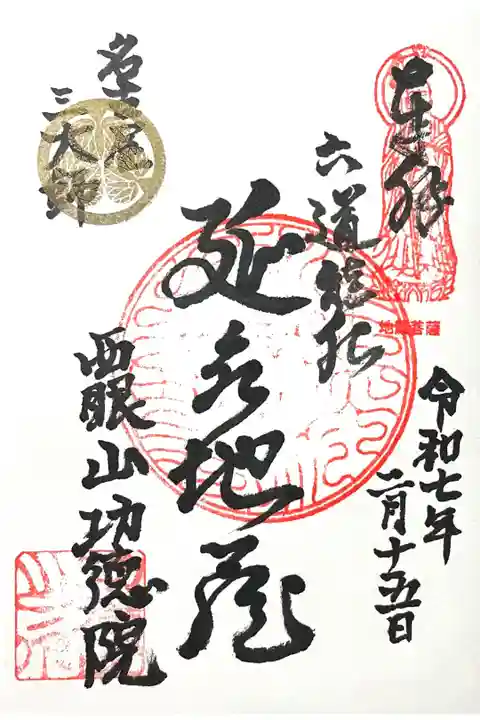 奉拝
地蔵菩薩
令和七年
二月十五日
六道能化
延命地蔵
三大師
山功徳院